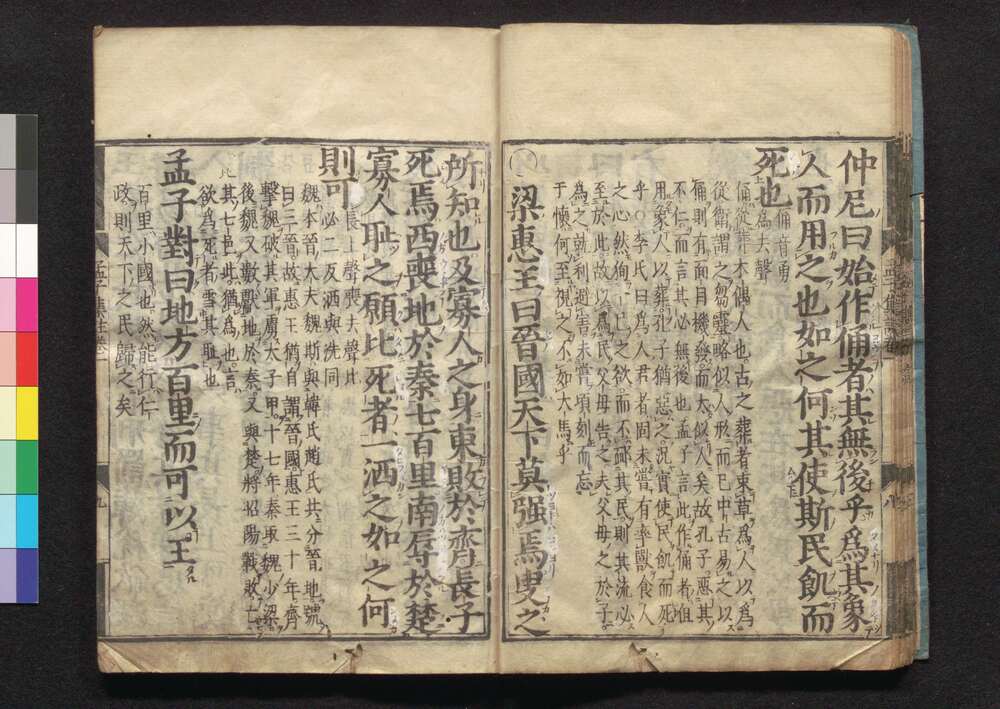 仲尼曰始作俑者其無後乎爲其象
人而用之也如之何其使斯民飢而
死也
俑音勇
爲去聲
俑從葬木偶人也古之葬者束草爲人以爲
從衛謂之芻靈略似人形而已中古易之以
俑則有面目機發而大似人矣故孔子惡其
不仁而言其必無後也孟子言此作俑者但
用象人以葬孔子猶惡之況實使民飢而死
乎○李氏曰爲人君者固未嘗有率獸食人
之心然狥一己之欲而不誣其民則其流必
至於此故以爲民父母告之夫父母之於子
爲之就利避害未嘗頃刻而忘
于懷何至視之不如犬馬乎
梁惠王曰晉國天下莫强焉叟之
所知也及寡人之身東敗於齊長子
死焉西喪地於秦七百里南辱於楚
寡人恥之願比死者一洒之如之何
則可
長上聲喪去聲比
必二反洒與洗同
魏本晉大夫魏斯與韓氏趙氏共分晉地號
曰三晉故惠王猶自謂晉國惠王三十年齊
擊魏破其軍虜太子甲十七年秦取魏少梁
後魏又數獻地於秦又與楚將昭陽戰敗亡
其七邑比猶爲也言
欲爲死者雪其恥也
孟子對曰地方百里而可以王
百里小國也然能行仁
政則天下之民歸之矣